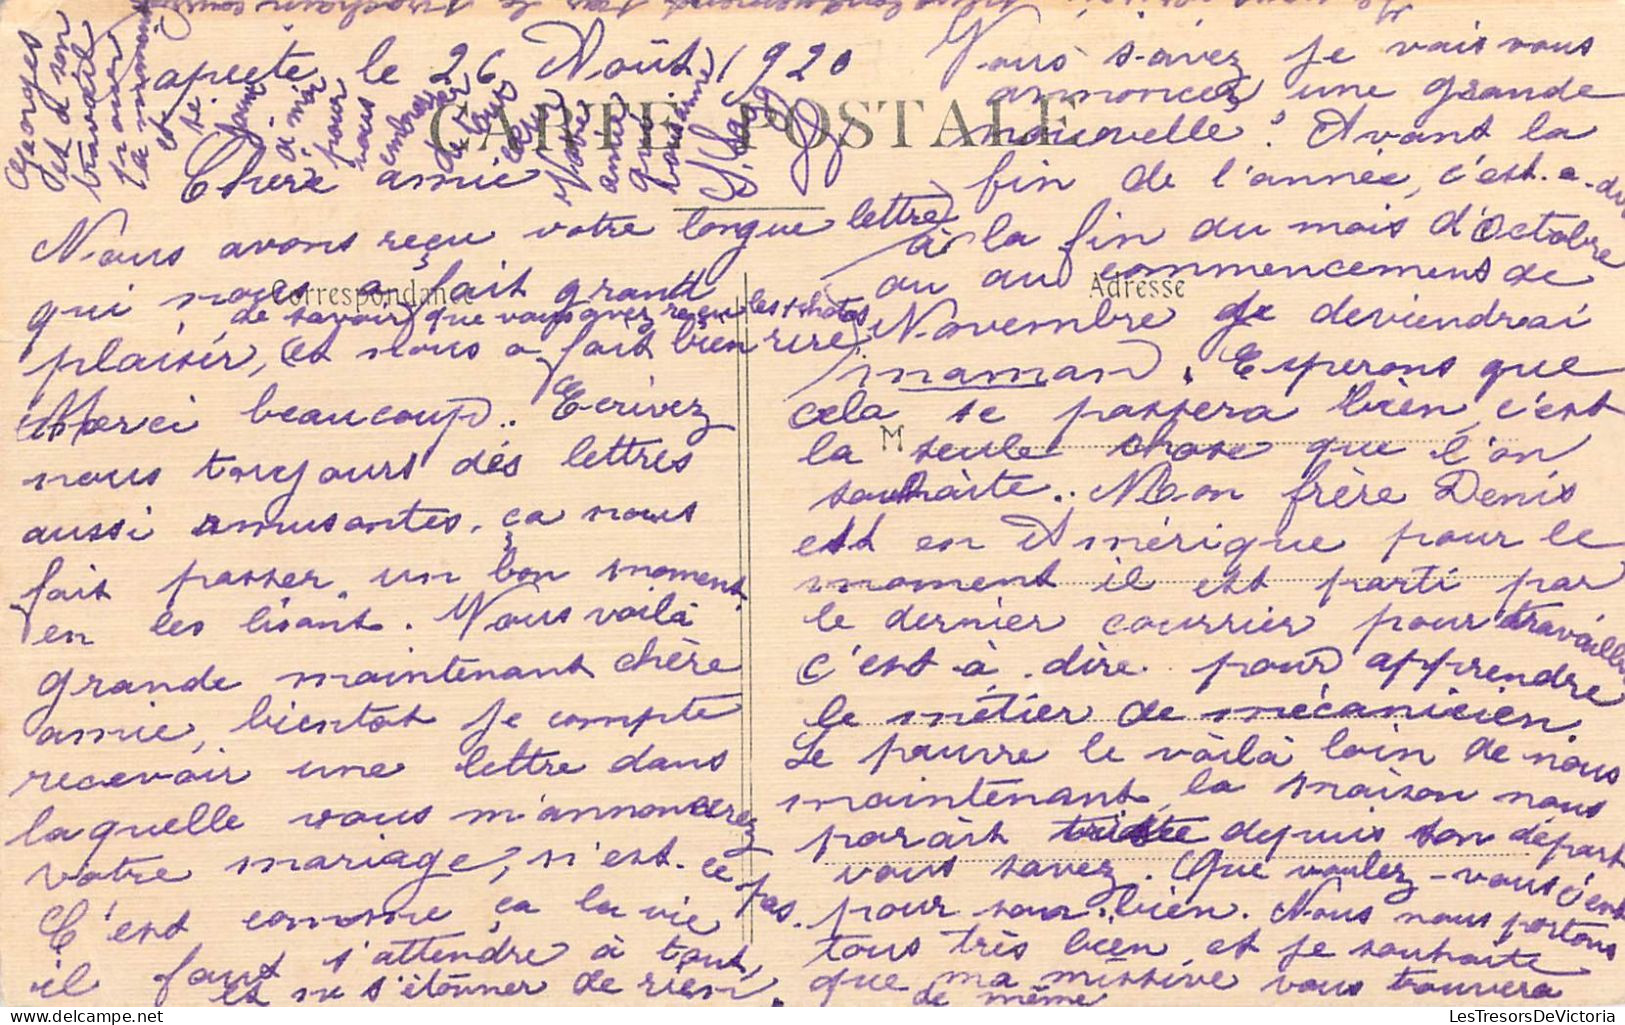 Papeete le 26 Août 1920
CARTE POSTALE
Chère amie
Correspondance
Nous avons reçu votre longue lettre
qui nous a fait grand
de savoir que vous avez reçu les photos
plaisir, et nous a fait bien rire
Merci beaucoup.. Ecrivez
nous toujours des lettres
aussi amusantes, ça nous
fait passer un bon moment
en les lisant. Nous voilà
grande maintenant chère
amie, bientot je compte
recevoir une lettre dans
laquelle vous m'annoncerez
votre mariage, n'est-ce pas.
C'est comme ça la vie
il faut s'attendre à tout,
et ne s'étonner de rien.
Adresse
M
Vous savez je vais vous
annoncez une grande
nouvelle! Avant la
fin de l'année, c'est-a-dire
à la fin du mois d'Octobre
ou au commencement de
Novembre je deviendrai
maman. Esperons que
cela se passera bien, c'est
la seule chose que l'on
souhaite.. Mon frère Denis
est en Amérique pour le
moment il est parti par
le dernier courrier pour travailler
c'est à dire pour apprendre
le métier de mécanicien.
Le pauvre le voilà loin de nous
maintenant, la maison nous
paraît triste depuis son départ
vous savez. Que voulez-vous c'est
pour son bien. Nous nous portons
tous très bien et je souhaite
que ma missive vous trouvera
de même
Georges
est à son
travail
la maman
et se
à
pour
nous
embrasser
Votre
amie
qui
LesTresorsDeVictoria.com